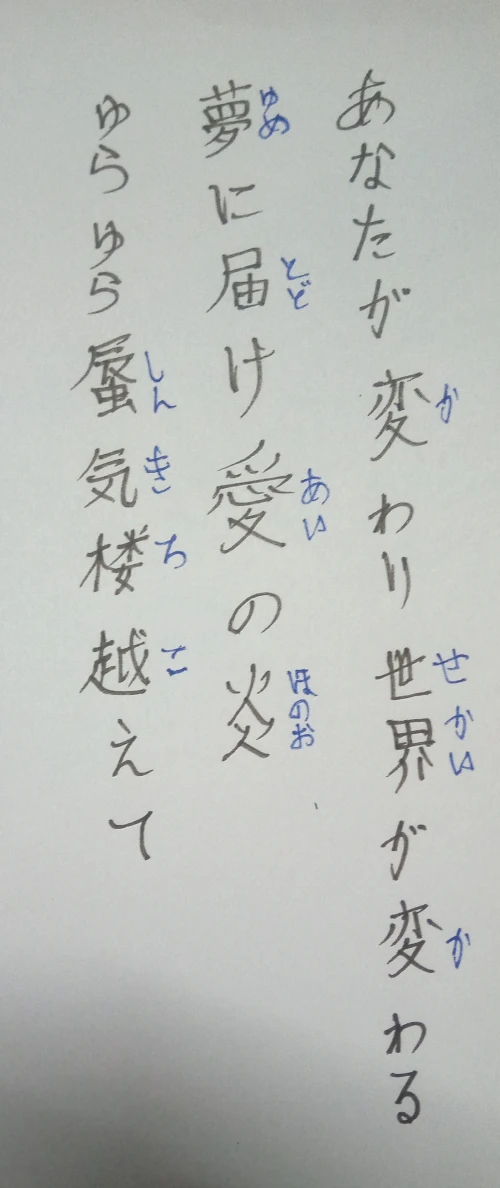 あなたが変わり世界が変わる
か
せかい
か
夢に届け愛の炎
ゆめ
とど
あい
ほのお
ゆらゆら蜃気楼越えて
しん
き
ろ
こ